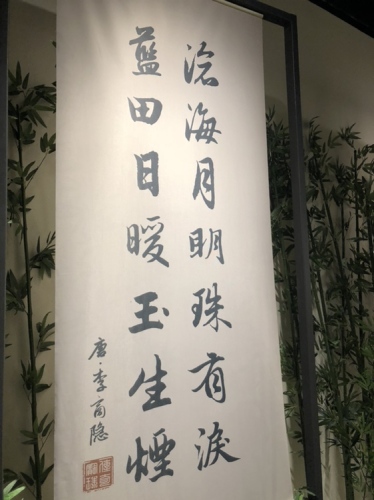 滄海月明珠有淚
藍田日暖玉生煙
唐·李商隐